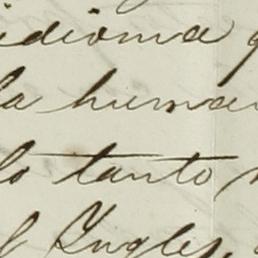 idioma
la human
lo tanto
Ingles,